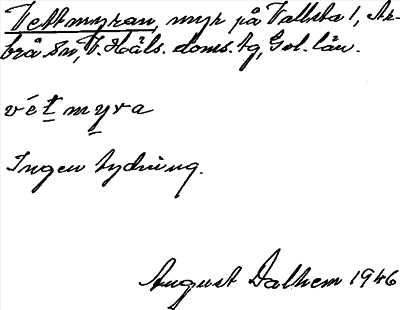 Vettmyran, myr på Vallsta 1, Ar-
brå sn, V. Häls. doms. tg, Gvl. län.
vét myra
Ingen tydning.
August Dalhem 1946